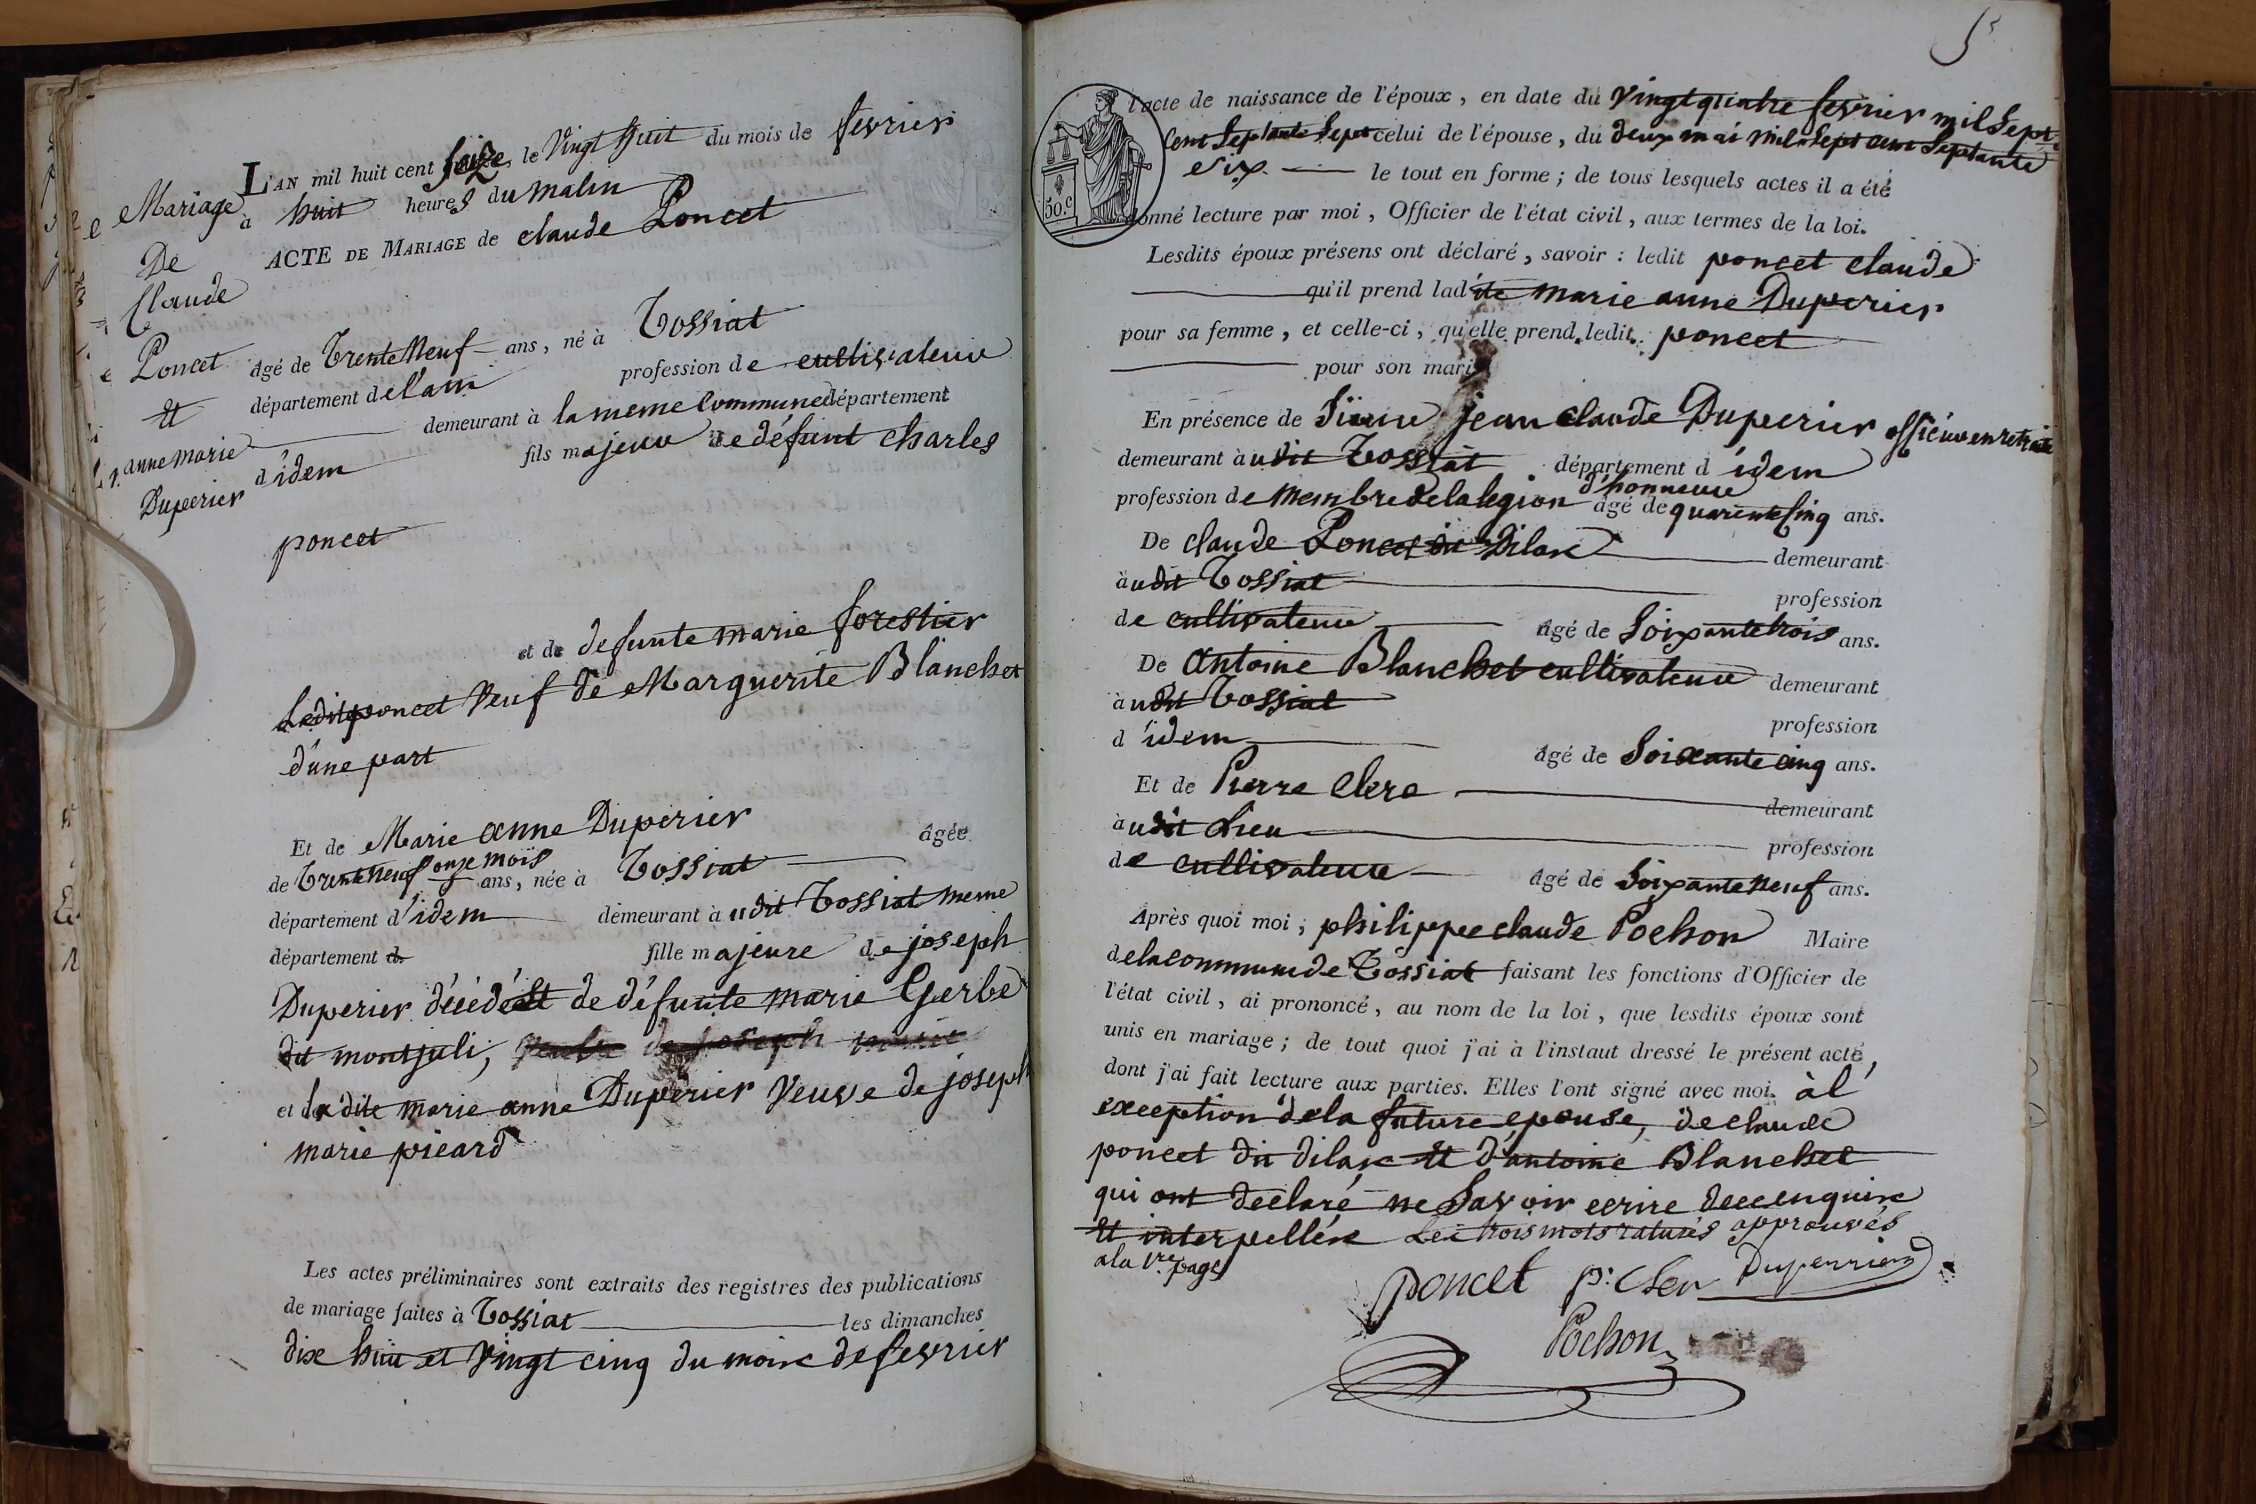 Mariage
De
Claude
Poncet
et
anne marie
Duperier
L'AN mil huit cent seize, le Vingt huit du mois de fevrier
à huit heures du matin
ACTE DE MARIAGE de claude Poncet
âgé de Trente Neuf ans, né à Tossiat
département de l'ain profession de cultivateur
demeurant à la meme Commune département
d'idem fils majeur de défunt charles
poncet
et de defunte marie forestier
Ledit poncet Veuf de Marguerite Blanchet
d'une part
Et de Marie anne Duperier âgée
de Trente Neuf onze mois ans, née à Tossiat
département d'idem demeurant à udit Tossiat meme
département d fille majeure de joseph
Duperier décédé et de défunte marie Gerbe
dit montjuli,
et ladite marie anne Duperier Veuve de joseph
marie picard
Les actes préliminaires sont extraits des registres des publications
de mariage faites à Tossiat les dimanches
dix huit et Vingt cinq du mois de fevrier
5
50.c
l'acte de naissance de l'époux, en date du Vingt quatre fevrier mil Sept
Cent Septante Sept celui de l'épouse, du deux mai mil Sept cent Septante
Six le tout en forme; de tous lesquels actes il a été
donné lecture par moi, Officier de l'état civil, aux termes de la loi.
Lesdits époux présens ont déclaré, savoir : ledit poncet claude
qu'il prend ladite marie anne Duperier
pour sa femme, et celle-ci, qu'elle prend ledit poncet
pour son mari
En présence de Sieur jean claude Duperier officier en retraite
demeurant à udit Tossiat département d'idem
profession de membre de la legion d'honneur âgé de quarente Cinq ans.
De claude Poncet dit Dilax demeurant
à udit Tossiat profession
de cultivateur âgé de Soixante trois ans.
De antoine Blanchet cultivateur demeurant
à udit Tossiat profession
d'idem âgé de Soixante cinq ans.
Et de Pierre Clerc demeurant
à udit Lieu profession
de cultivateur âgé de Soixante Neuf ans.
Après quoi moi, philippe claude Pochon Maire
de la commune de Tossiat faisant les fonctions d'Officier de
l'état civil, ai prononcé, au nom de la loi, que lesdits époux sont
unis en mariage; de tout quoi j'ai à l'instaut dressé le présent acte,
dont j'ai fait lecture aux parties. Elles l'ont signé avec moi. à l'
exception de la future epouse, de claude
poncet dit dilax et d'antoine Blanchet
qui ont declaré ne Savoir ecrire de ce enquis
et interpellés Les trois mots raturés approuvés
a la 1re page
poncet p: Cler Duperrier
Pochon